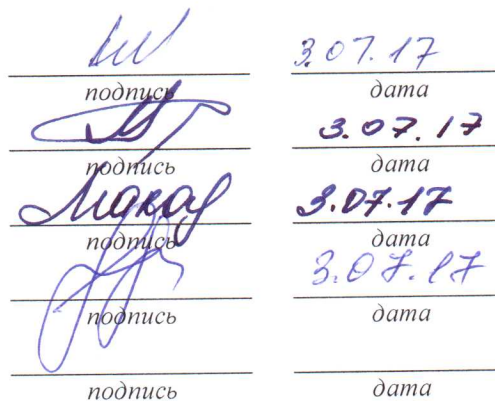 3.07.17
подпись дата
3.07.17
подпись дата
3.07.17
подпись дата
3.07.17
подпись дата
подпись дата